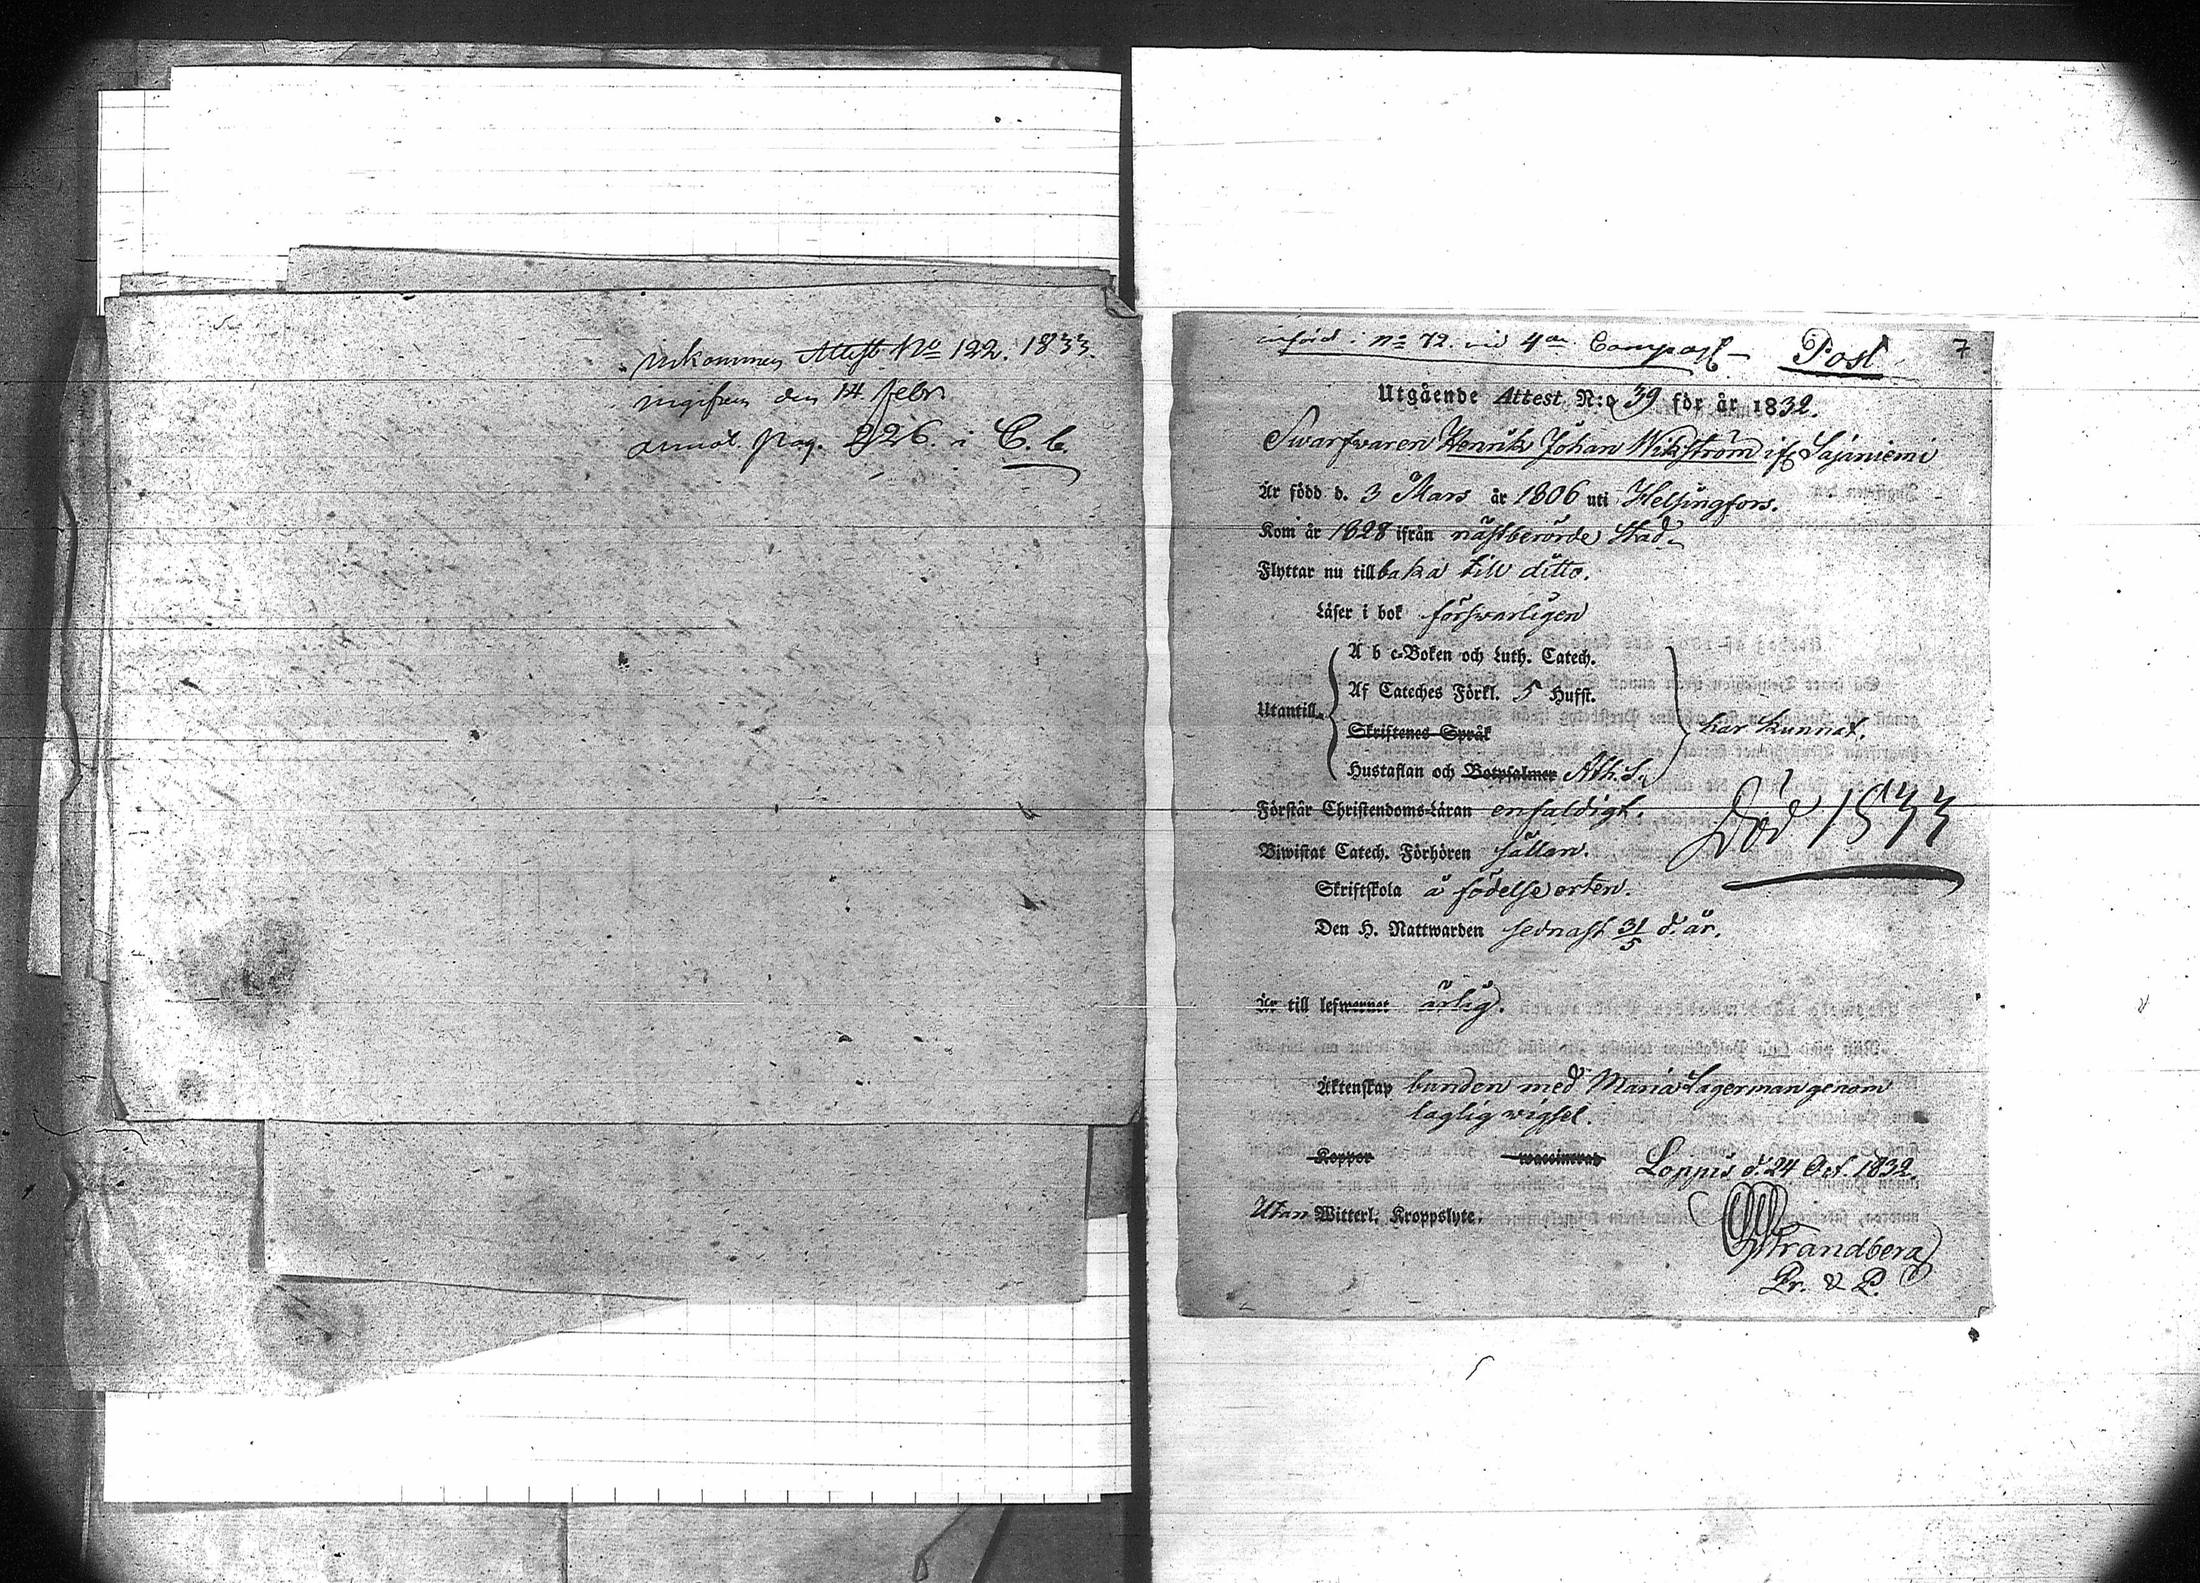 Inkommen Attest No 122. 1833.
ingifven den 14 Febr
annot. pag. 226. i C. b.
införd i No 72. vid 4de Compost — Post 7
Utgående Attest N:o 39 för år 1832.
Swarfwaren Henrik Johan Wikström ifr. Sajaniemi
Är född d. 3 Mars år 1806 uti Helsingfors.
Kom år 1828 ifrån nästberörde Stad.
Flyttar nu tillbaka till ditto.
Läser i bok förswarligen
A b c-Boken och Luth. Catech.
Af Cateches Förkl. 5 Hufst.
Utantill
Skriftenes Språk
har kunnat.
Hustaflan och Botpsalmer Ath. S.
Förstår Christendoms-Läran enfaldigt.
Död 1833
Biwistat Catech. Förhören sällan.
Skriftskola å födelse orten.
Den H. Nattwarden sednast 31/5 d. år.
Är till lefwernet ärlig.
Äktenskap bunden med Maria Lagerman genom
laglig wigsel.
Koppor waccinerad Loppis d. 24 Oct. 1832.
Utan Witterl. Kroppslyte.
Strandberg
Pr. & P.